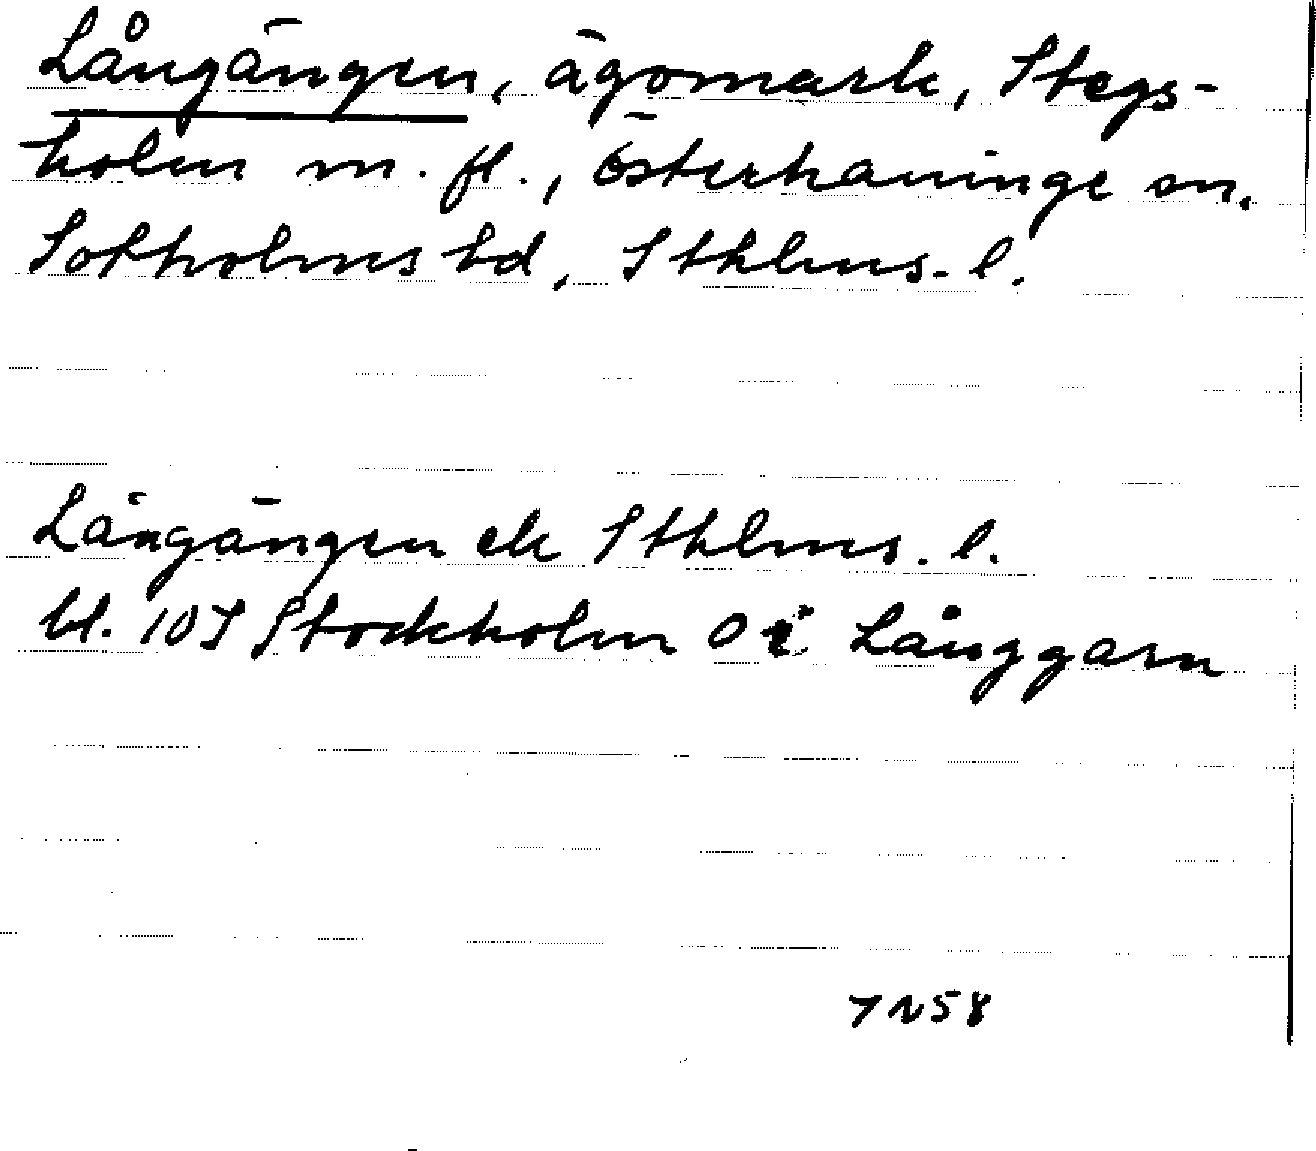 Långängen, ägomark, Stegs-
holm m. fl., Österhaninge sn.
Sotholms hd, Sthlms. l.
Långängen ek Sthlms. l.
bl. 10J Stockholm Oi Långgarn
7N58